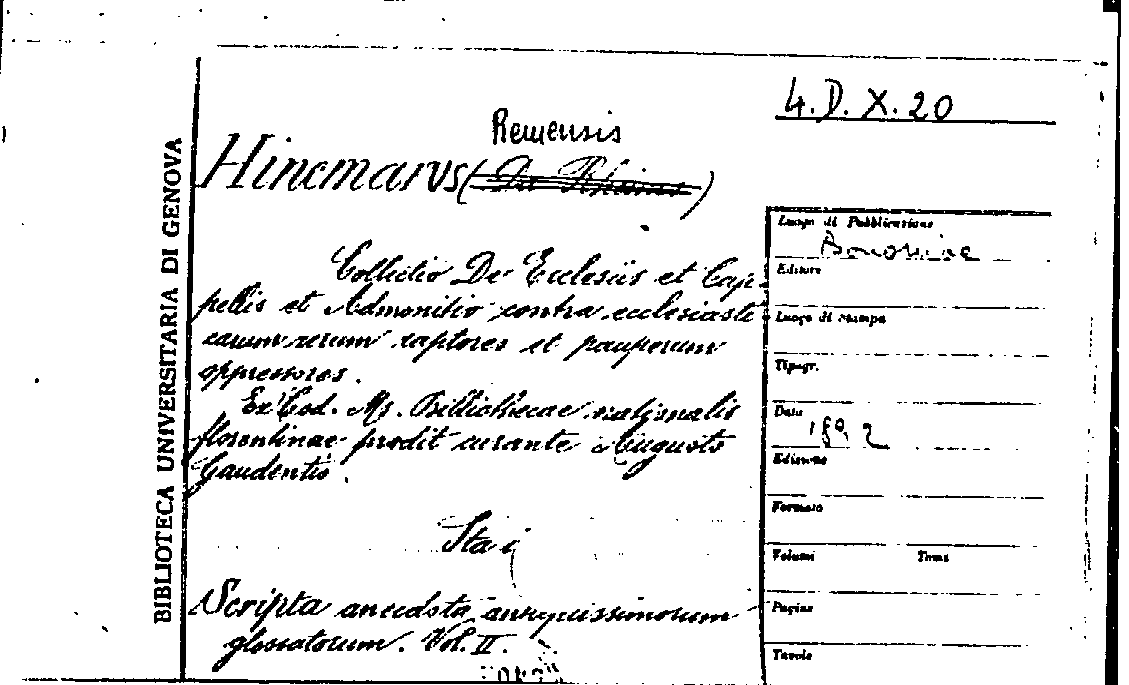 4.D.X.20
BIBLIOTECA UNIVERSITARIA DI GENOVA
Remensis
Hincmarus ( )
Collectio De Ecclesiis et Cap-
pellis et Admonitio contra ecclesiasti
carum rerum raptores et pauperum
oppressores.
Ex Cod. Ms. Bibliothecae nationalis
florentinae prodit curante Augusto
Gaudentio.
Sta
Scripta anecdota antiquissimorum
glossatorum. Vol. II.
Luogo di Pubblicazione
Bononiae
Editore
Luogo di stampa
Tipogr.
Data
1892
Edizione
Formato
Volumi Tomi
Pagine
Tavole